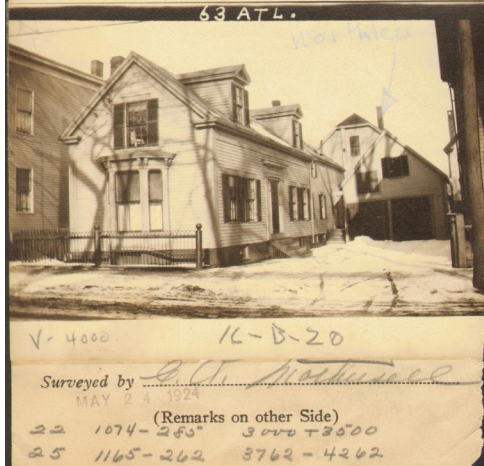 63 ATL.
Worthley
V- 4000.
16-B-20
Surveyed by
MAY 24 1924
(Remarks on other Side)
22 1074-285 3000 + 3500
25 1165-262 3762 - 4262